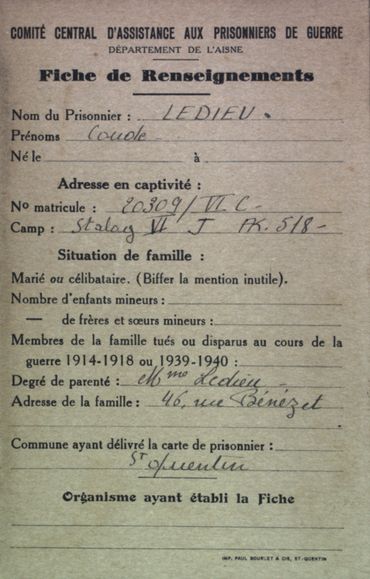 COMITÉ CENTRAL D'ASSISTANCE AUX PRISONNIERS DE GUERRE
DÉPARTEMENT DE L'AISNE
Fiche de Renseignements
Nom du Prisonnier : LEDIEU
Prénoms
Né le à
Adresse en captivité :
No matricule : 20309/VI C -
Camp : Stalag VI J AK. 518 -
Situation de famille :
Marié ou célibataire. (Biffer la mention inutile).
Nombre d'enfants mineurs :
— de frères et sœurs mineurs :
Membres de la famille tués ou disparus au cours de la
guerre 1914-1918 ou 1939-1940 :
Degré de parenté : Mme Ledieu -
Adresse de la famille : 46, rue Bénézet
Commune ayant délivré la carte de prisonnier :
St Quentin
Organisme ayant établi la Fiche
IMP. PAUL BOURLET & CIE, ST-QUENTIN